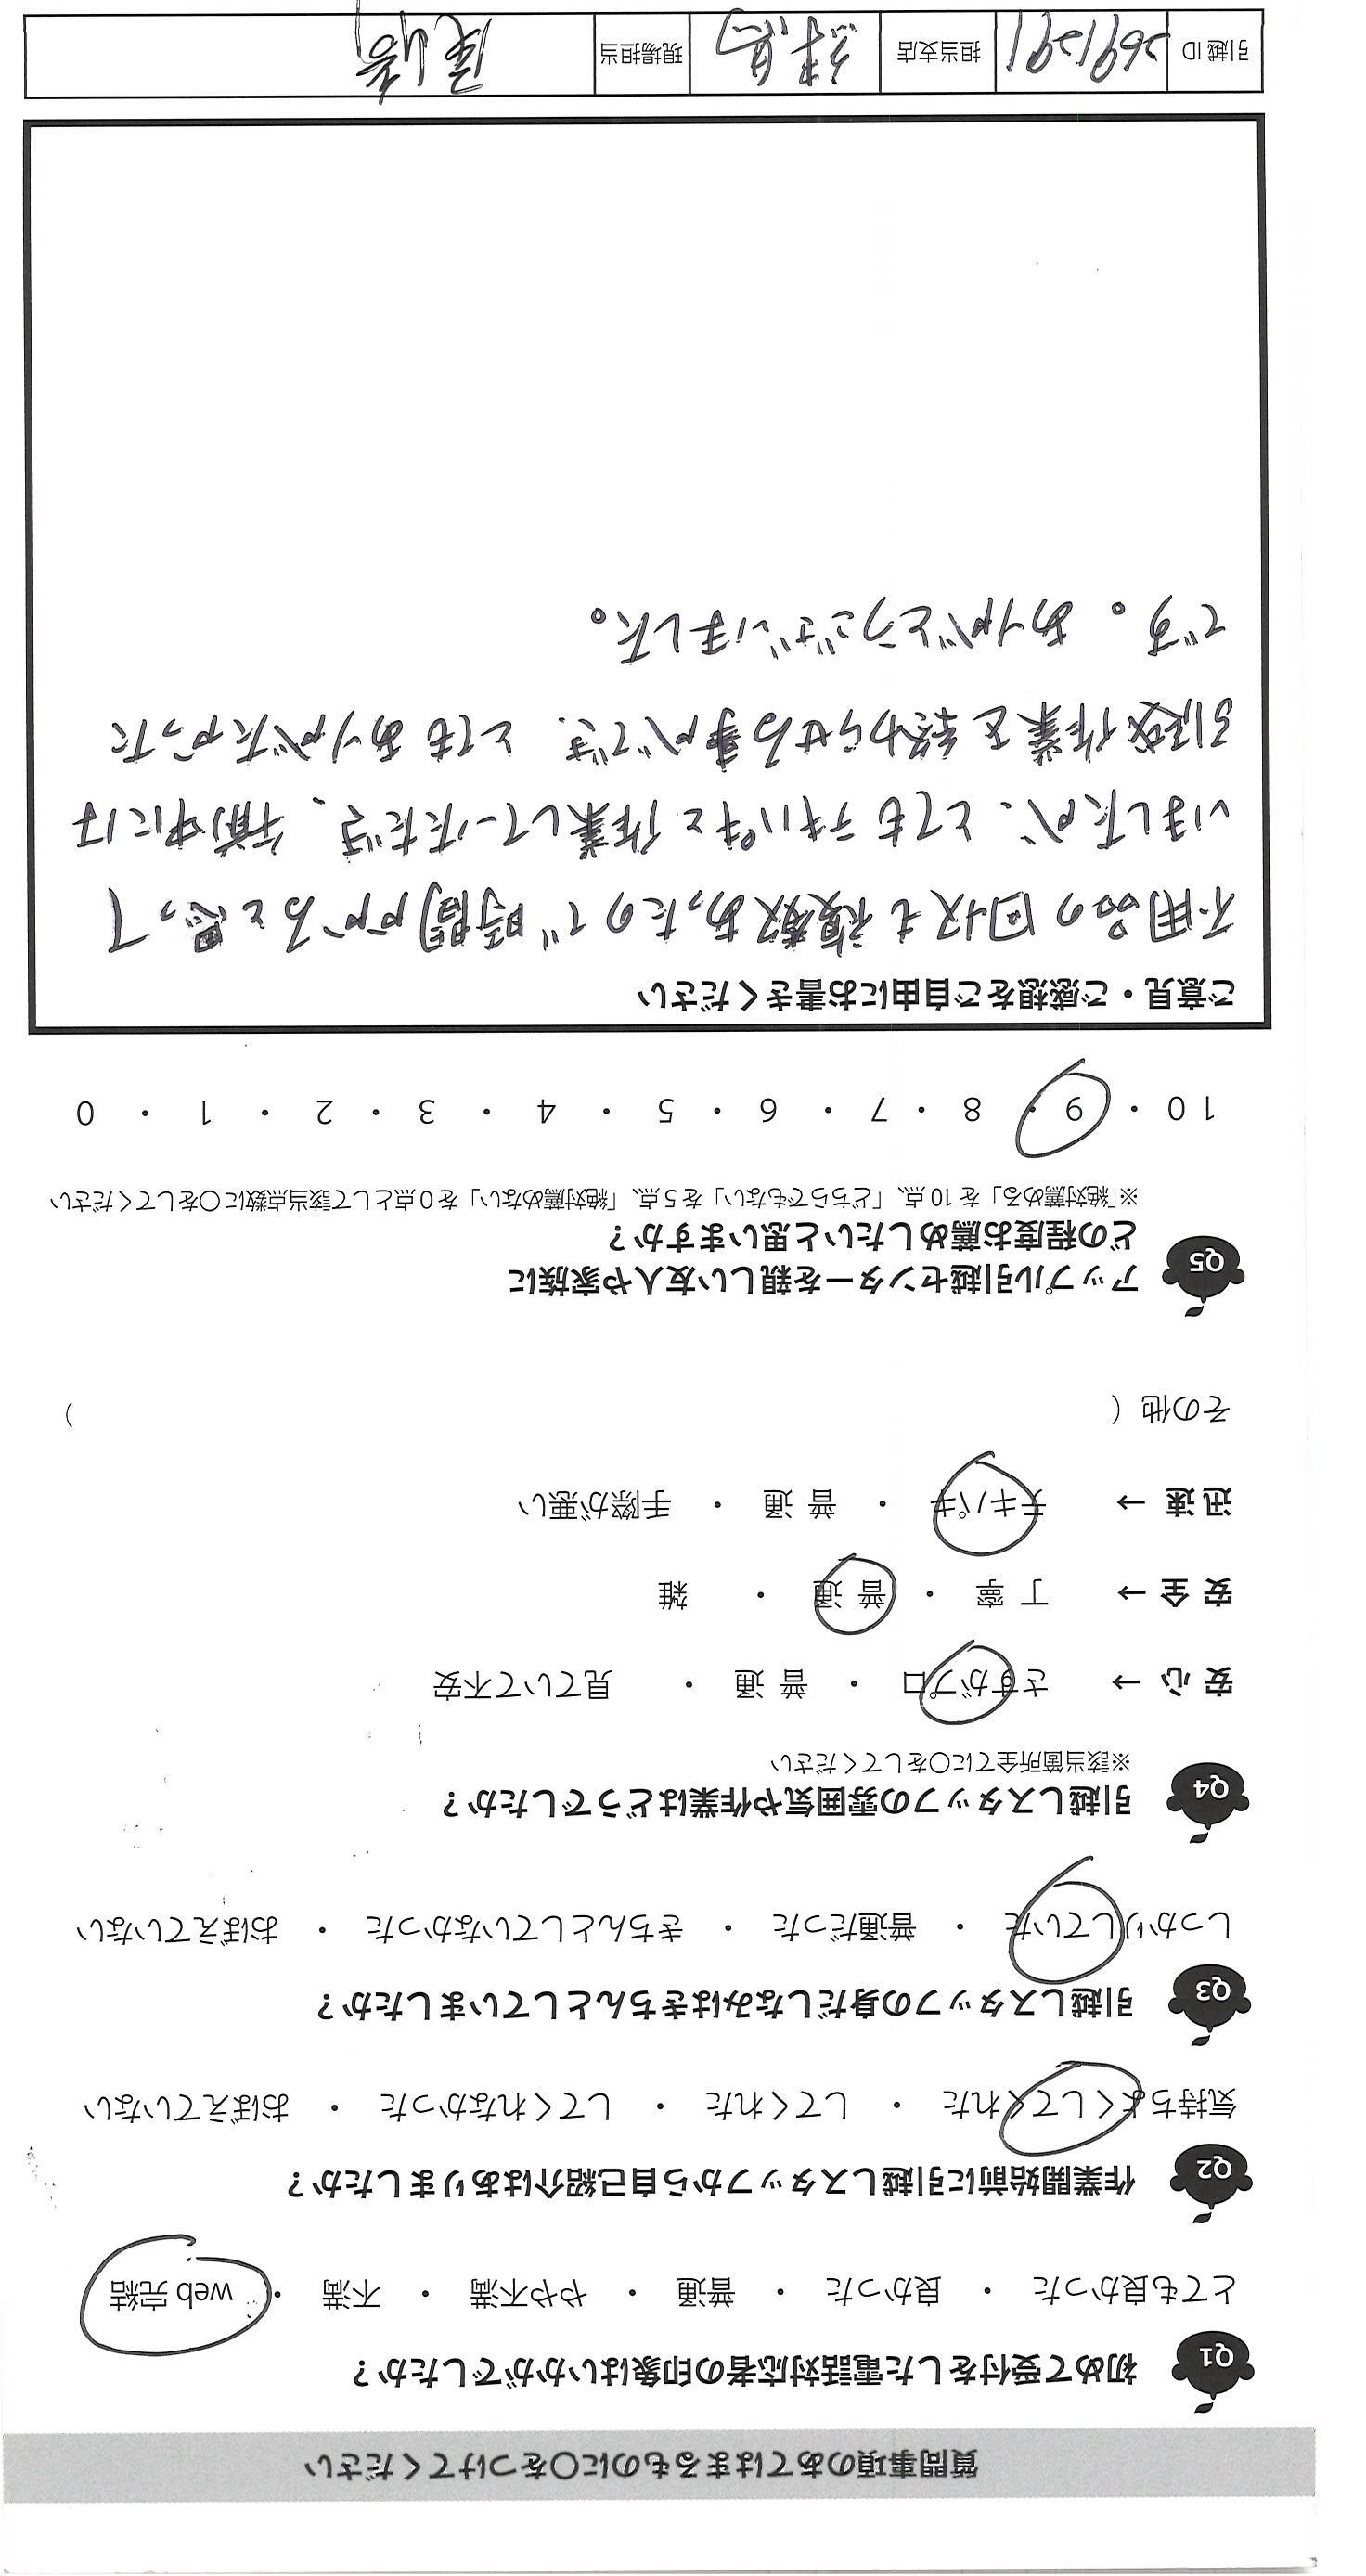 質問事項のあてはまるものに〇をつけてください
Q1 初めて受付をした電話対応者の印象はいかがでしたか？
とても良かった ・ 良かった ・ 普通 ・ やや不満 ・ 不満 ・ web 完結
Q2 作業開始前に引越しスタッフから自己紹介はありましたか？
気持ちよくしてくれた ・ してくれた ・ してくれなかった ・ おぼえていない
Q3 引越しスタッフの身だしなみはきちんとしていましたか？
しっかりしていた ・ 普通だった ・ きちんとしていなかった ・ おぼえていない
Q4 引越しスタッフの雰囲気や作業はどうでしたか？
※該当箇所全てに〇をしてください
安 心 → さすがプロ ・ 普 通 ・ 見ていて不安
安 全 → 丁 寧 ・ 普 通 ・ 雑
迅 速 → テキパキ ・ 普 通 ・ 手際が悪い
その他 （ ）
Q5 アップル引越センターを親しい友人や家族に
どの程度お薦めしたいと思いますか？
※「絶対薦める」を 10 点、「どちらでもない」を 5 点、「絶対薦めない」を 0 点として該当点数に〇をしてください
10 ・ 9 ・ 8 ・ 7 ・ 6 ・ 5 ・ 4 ・ 3 ・ 2 ・ 1 ・ 0
ご意見・ご感想をご自由にお書きください
不用品の回収も複数あったので時間がかかると思って
いましたが、とてもテキパキと作業していただき、午前中には
引越作業を終わらせる事ができ、とてもありがたかった
です。ありがとうございました。
引越 ID 2691291 担当支店 練馬 現場担当 尾崎